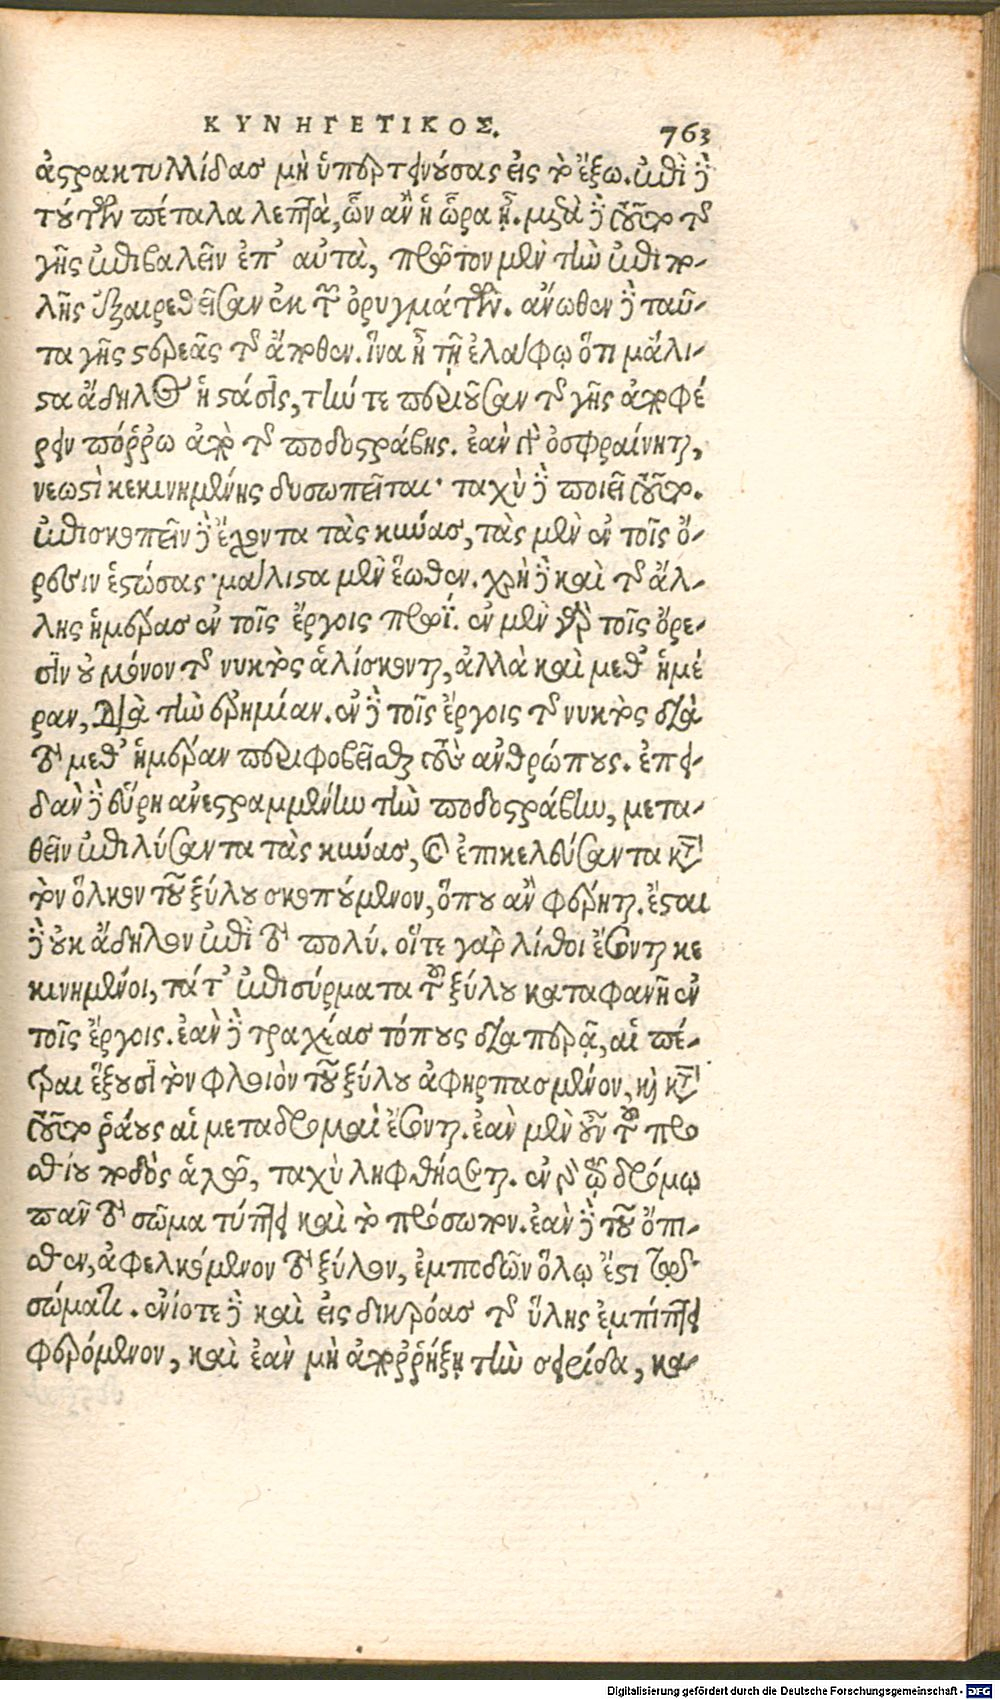 ΚΥΝΗΓΕΤΙΚΟΣ. 763
ἀστρακτυλλίδας μὴ ὑπερτεινούσας εἰς τὸ ἔξω. ἐπὶ δὲ
τούτων πέταλα λεπτὰ, ὧν ἂν ἡ ὥρα ᾖ. μετὰ δὲ τοῦτο τῆς
γῆς ἐπιβαλεῖν ἐπ' αὐτὰ, πρῶτον μὲν τὴν ἐπιπο-
λῆς ἐξαιρεθεῖσαν ἐκ τῶν ὀρυγμάτων. ἄνωθεν δὲ ταῦ-
τα γῆς στερεᾶς τῆς ἄποθεν. ἵνα ᾖ τῇ ἐλάφῳ ὅτι μάλι-
στα ἄδηλος ἡ στάσις, τήν τε περιοῦσαν τῆς γῆς ἀποφέ
ρειν πόῤῥω ἀπὸ τῆς ποδοστράβης. ἐὰν γὰρ ὀσφραίνηται,
νεωστὶ κεκινημένης δυσωπεῖται· ταχὺ δὲ ποιεῖ τοῦτο.
ἐπισκοπεῖν δὲ ἔχοντα τὰς κύνας, τὰς μὲν ἐν τοῖς ὄ-
ρεσιν ἑστώσας· μάλιστα μὲν ἕωθεν. χρὴ δὲ καὶ τῆς ἄλ-
λης ἡμέρας ἐν τοῖς ἔργοις πρωΐ. ἐν μὲν γὰρ τοῖς ὄρε-
σιν οὐ μόνον τῆς νυκτὸς ἁλίσκονται, ἀλλὰ καὶ μεθ' ἡμέ
ραν, διὰ τὴν ἐρημίαν. ἐν δὲ τοῖς ἔργοις τῆς νυκτὸς διὰ
τὸ μεθ' ἡμέραν περιφοβεῖσθαι τοὺς ἀνθρώπους. ἐπει-
δὰν δὲ εὕρῃ ἀνεστραμμένην τὴν ποδοστράβην, μετα-
θεῖν ἐπιλύσαντα τὰς κύνας, καὶ ἐπικελεύσαντα κατὰ
τὸν ὁλκὸν τοῦ ξύλου σκοπούμενον, ὅπου ἂν φέρηται. ἔσται
δὲ οὐκ ἄδηλον ἐπὶ τὸ πολύ. οἵ τε γὰρ λίθοι ἔσονται κε
κινημένοι, τά τ' ἐπισύρματα τοῦ ξύλου καταφανῆ ἐν
τοῖς ἔργοις. ἐὰν δὲ τραχέας τόπους διαπερᾷ, αἱ πέ-
τραι ἕξουσι τὸν φλοιὸν τοῦ ξύλου ἀφηρπασμένον, καὶ κατὰ
τοῦτο ῥᾴους αἱ μεταδρομαὶ ἔσονται. ἐὰν μὲν οὖν τοῦ προ
σθίου ποδὸς ἁλῷ, ταχὺ ληφθήσεται. ἐν γὰρ τῷ δρόμῳ
πᾶν τὸ σῶμα τύπτει καὶ τὸ πρόσωπον. ἐὰν δὲ τοῦ ὄπι-
σθεν, ἀφελκόμενον τὸ ξύλον, ἐμποδὼν ὅλῳ ἐστὶ τῷ
σώματι. ἐνίοτε δὲ καὶ εἰς δικρόας τῆς ὕλης ἐμπίπτει
φερόμενον, καὶ ἐὰν μὴ ἀποῤῥήξῃ τὴν σειρίδα, κα-
Digitalisierung gefördert durch die Deutsche Forschungsgemeinschaft - DFG